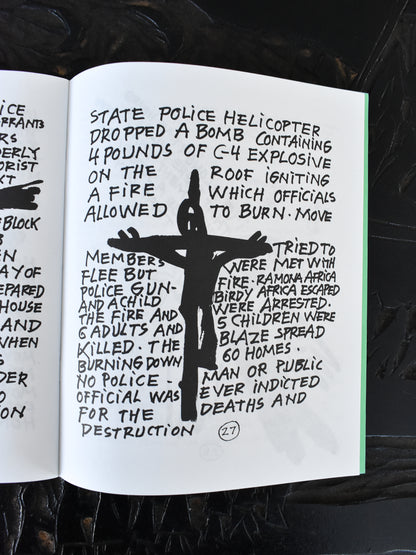 ICE
RRANTS
RS
DERLY
ORIST
XT
E BLOCK
EN
AY OF
EPARED
HOUSE
AND
WHEN
S
DER
O
ION
STATE POLICE HELICOPTER
DROPPED A BOMB CONTAINING
4 POUNDS OF C-4 EXPLOSIVE
ON THE ROOF IGNITING
A FIRE WHICH OFFICIALS
ALLOWED TO BURN. MOVE
MEMBERS TRIED TO
FLEE BUT WERE MET WITH
POLICE GUN- FIRE. RAMONA AFRICA
AND A CHILD BIRDY AFRICA ESCAPED
THE FIRE AND WERE ARRESTED.
6 ADULTS AND 5 CHILDREN WERE
KILLED. THE BLAZE SPREAD
BURNING DOWN 60 HOMES.
NO POLICE- MAN OR PUBLIC
OFFICIAL WAS EVER INDICTED
FOR THE DEATHS AND
DESTRUCTION 27